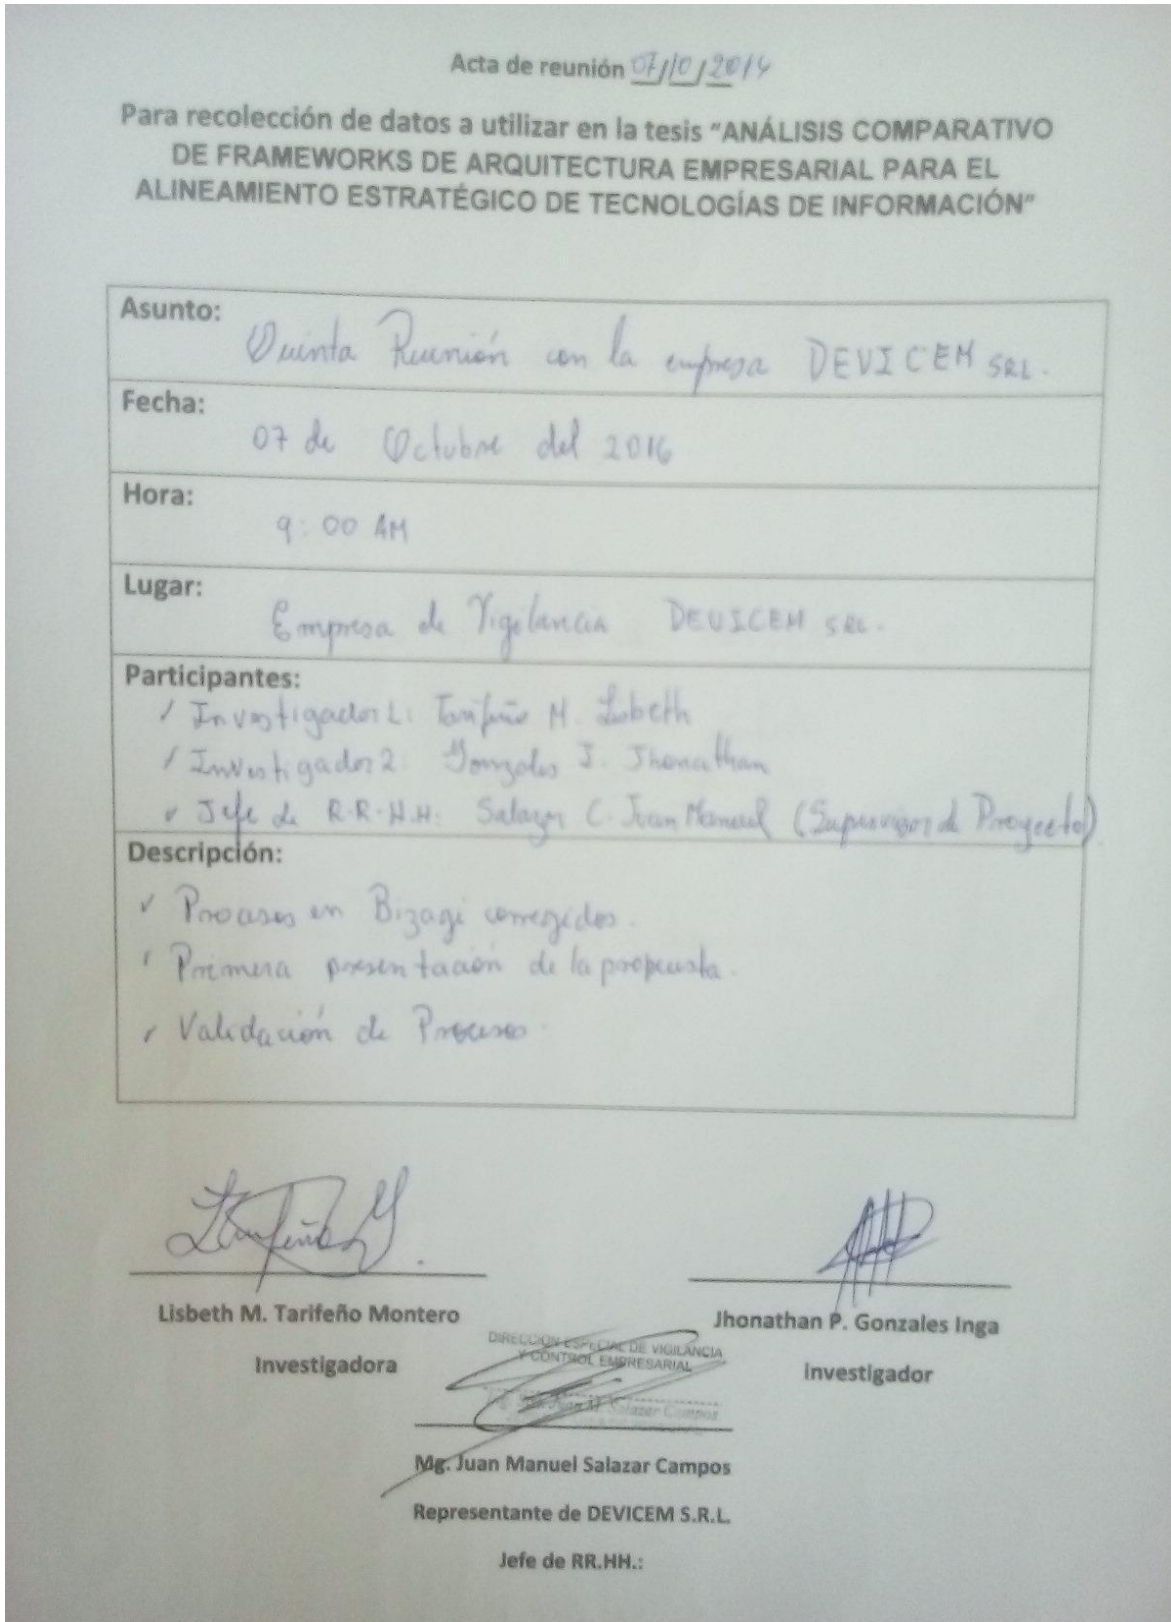 Acta de reunión 07/10/2014
Para recolección de datos a utilizar en la tesis “ANÁLISIS COMPARATIVO
DE FRAMEWORKS DE ARQUITECTURA EMPRESARIAL PARA EL
ALINEAMIENTO ESTRATÉGICO DE TECNOLOGÍAS DE INFORMACIÓN”
Asunto:
Quinta Reunión con la empresa DEVICEM SRL.
Fecha:
07 de Octubre del 2016
Hora:
9:00 AM
Lugar:
Empresa de Vigilancia DEVICEM SRL.
Participantes:
✓ Investigador 1: Tarifeño M. Lisbeth
✓ Investigador 2: Gonzales I. Jhonathan
✓ Jefe de R.R.H.H: Salazar C. Juan Manuel (Supervisor de Proyecto)
Descripción:
✓ Procesos en Bizagi corregidos.
✓ Primera presentación de la propuesta.
✓ Validación de Procesos.
Lisbeth M. Tarifeño Montero
Investigadora
Jhonathan P. Gonzales Inga
Investigador
DIRECCIÓN ESPECIAL DE VIGILANCIA
Y CONTROL EMPRESARIAL
Juan M. Salazar Campos
Mg. Juan Manuel Salazar Campos
Representante de DEVICEM S.R.L.
Jefe de RR.HH.: